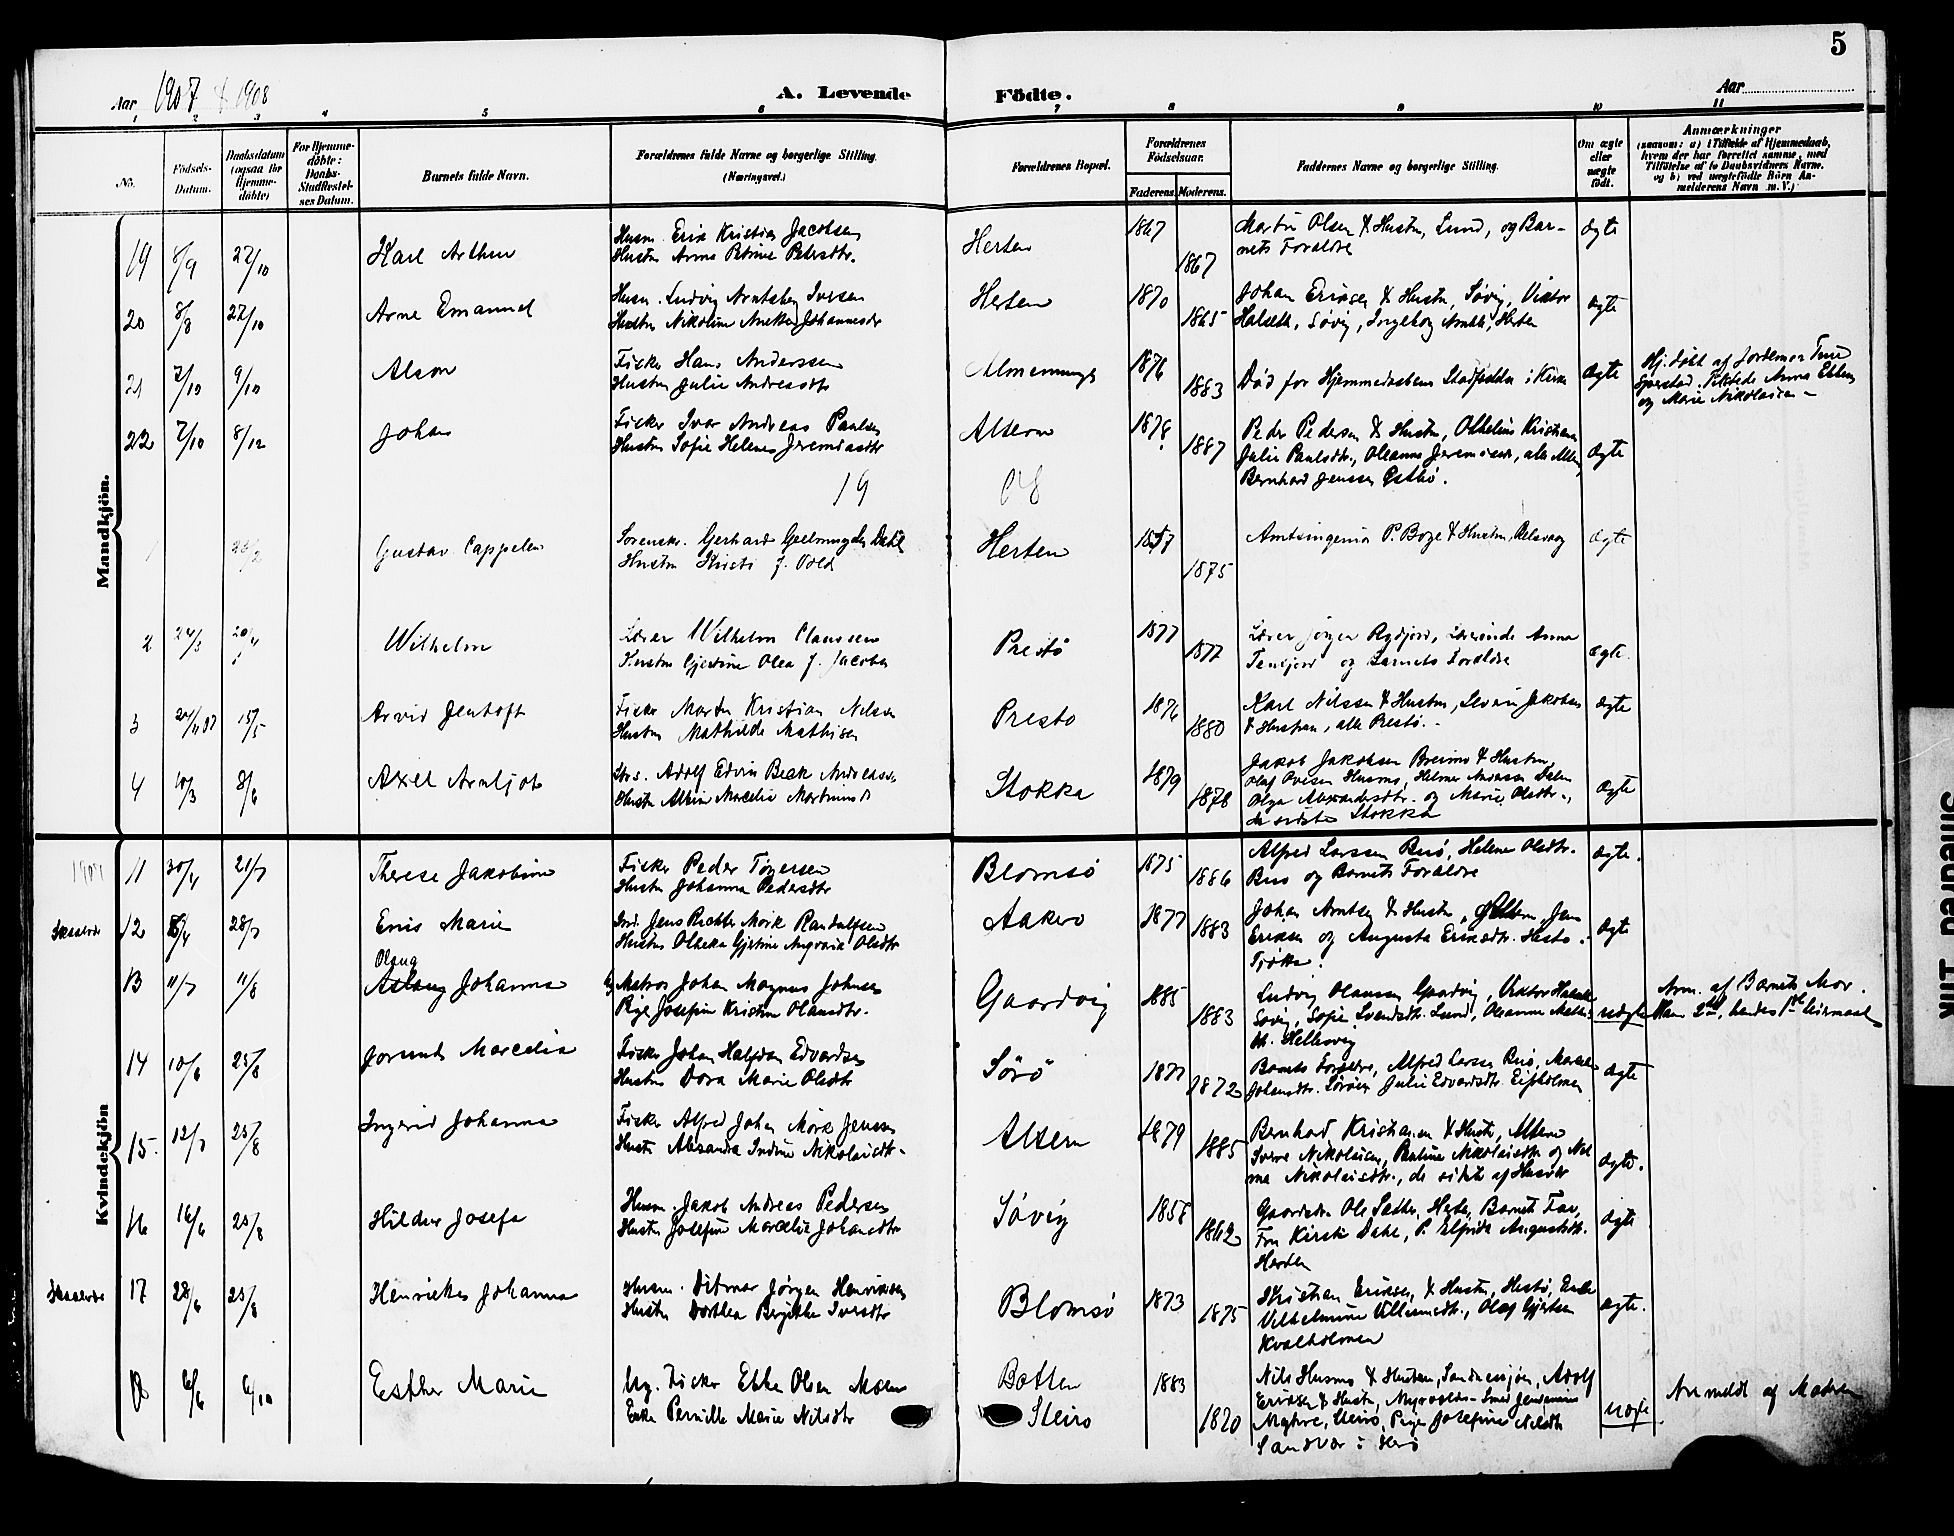 5
Aar 1907 & 1908
A. Levende Födte.
Aar
1 2 3 4 5 6 7 8 9 10 11
No.
Födsels-Datum.
Daabsdatum (ogsaa for Hjemmedöbte)
For Hjemmedöbte: Daabs-Stadfæstelses Datum.
Barnets fulde Navn.
Forældrenes fulde Navne og borgerlige Stilling. (Næringsvei.)
Forældrenes Bopæl.
Forældrenes Födselsaar.
Faderens. Moderens.
Faddernes Navne og borgerlige Stilling.
Om ægte eller uægte födt.
Anmærkninger
(saasom: a) i Tilfælde af Hjemmedaab, hvem der har forrettet samme, med Tilföielse af to Daabsvidners Navne. og b) ved uægtefödte Börn Anmelderens Navn m. V.)
Mandkjön.
19 8/9 27/10 Karl Arthur
Husm. Erik Kristian Jacobsen
Hustru Anna Petrine Petersdtr.
Herten 1867 1867
Martin Olsen & Hustru, Lund, og Bar-
nets Forældre
ægte
20 8/8 27/10 Arne Emanuel
Husm. Ludvig Arntsberg Iversen
Hustru Nikoline Anetta Johannesdr
Herten 1870 1865
Johan Eriksen & Hustru, Søvig, Viktor
Halseth, Søvig, Ingeborg Herten
ægte
21 7/10 9/10 Alson
Fisker Hans Anderssen
Hustru Julie Andreasdtr
Almenninge 1876 1883
Død før Hjemmedaabens Stadfestelse i Kirke
ægte
Hj. døbt af Jordemor
Anna Ebbesen
og Marie Nikolaisen -
22 7/10 8/12 Johan
Fisker Ivar Andreas Paulsen
Hustru Sofie Helene Jeremiasdtr
Altern 1878 1887
Peder Pedersen & Hustru, Othelius Kristiansen
Julie Paulsdtr., Oleanna Jeremiasdr, alle Altern,
Bernhard Jenssen
ægte
19 08
1 Gustav Cappelen
Sorenskr. Gerhard Geelmuyden Dahl
Hustru Kirsti f. Vold
Herten 1857 1875
Amtsingeniør P. Boye & Hustru,
ægte
2 24/3 20/4 Wilhelm
Lærer Wilhelm Claussen
Hustru Gjertine Olea f. Jacobsen
Prestø 1877 1877
Lærer Jørgen Rydjord, Lærerinde Anna
og Barnets Forældre
ægte.
3 24/11 07 15/5 Arvid Jentoft
Fisker Martin Kristian Nilsen
Hustru Mathilde Mathisen
Prestø 1876 1880
Karl Nilssen & Hustru, Severin Jakobsen
& Hustru, alle Prestø. -
ægte
4 10/3 8/6 Axel Arnljot
Adolf Edvin Beck Andreass.
Hustru Marcelie Martinusd
Stokka 1879 1878
Jakob Jakobsen Breimo & Hustru,
Olaf Ovesen Husmo, Helmer Andersen Dalen
Olga Alexandersdtr. og Marie Olsdtr.,
de sidste Stokka
ægte
Kvindekjön
1907
11 30/4 21/7 Therese Jakobine
Fisker Peder Tørgersen
Hustru Johanna Pedersdtr
Blomsø 1875 1886
Alfred Larssen Buø, Helene Olsdtr.
Buø og Barnets Forældre
ægte.
12 28/7 Enis Marie
Ind. Jens Richter Mørk Randulfsen
Hustru Gjertine Olsdtr
Aakerø 1877 1883
Johan Arntsen & Hustru, Jens
Eriksen og Augusta Eriksdtr. Hestø.
Tjøtta.
ægte
13 11/7 11/8 Olaug Aslaug Johanna
Ug. Matros Johan Magnus Johnsen
Pige Josefine Kristine Olausdtr.
Gaardvig 1885 1883
Ludvig Olaussen Gaardvig, Viktor Halseth
Søvig, Sofie Svendsdtr. Lund, Oleanna
Hellesvig
uægte
Anm. af Barnets Mor.
Hans 2det, hendes 1ste Leiermaal
14 10/6 25/8 Jorunn Marcelia
Fisker Johan Halfdan Edvardsen
Hustru Dora Marie Olsdtr
Sørø 1877 1872
Barnets Forældre, Alfred Larsen Buø, Marcelie
Johansdtr. Sørøen Julie Edvardsdtr.
ægte
15. 12/7 25/8 Ingerid Johanna
Fisker Alfred Johan Mørk Jenssen
Hustru Alexandra Indine Nikolaisdtr.
Altern 1879 1885
Bernhard Kristiansen & Hustru, Altern
Sverre Nikolaisen, Pauline Nikolaisdtr og
Nikolaisdtr., de sidste af Husvær
ægte.
16 16/6 25/8 Hildur Josefa
Husm. Jakob Andreas Pedersen
Hustru Josefine Marcelie Johansdtr
Søvig 1858 1862
Gaardmdr. Ole Sæther, Herten, Barnets Far,
Fru Kirsti Dahl, P. Elfrida Augustsdtr.
Herten
ægte
17 28/6 25/8 Henrikka Johanna
Husm. Ditmar Jørgen Henriksen
Hustru Dorthea Bergitte Iversdtr
Blomsø 1873 1875
Kristian Eriksen & Hustru, Hestø, Enke
Vilhelmine Villumsdtr., Olaf Gjertsen
Kvalholmen
ægte.
18 6/6 6/10 Esther Marie
Ug. Fisker Ebbe Olsen Moen
Enke Pernille Marie Nilsdtr
Botten
Steiro 1883 1870
Nils Husmo & Hustru, Sandnessjøen, Adolf
Eriksen & Hustru,
Steiro, Pige Josefine Nilsdtr
Sandvær i Herø
uægte
Anmeldt af Moderen